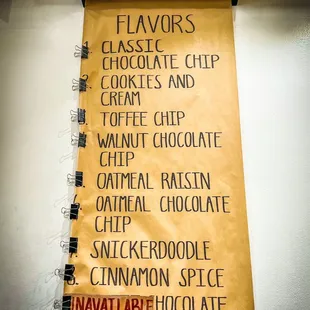 FLAVORS
CLASSIC
CHOCOLATE CHIP
COOKIES AND
CREAM
TOFFEE CHIP
WALNUT CHOCOLATE
CHIP
OATMEAL RAISIN
OATMEAL CHOCOLATE
CHIP
SNICKERDOODLE
CINNAMON SPICE
NAVAILABLE HOCOLATE